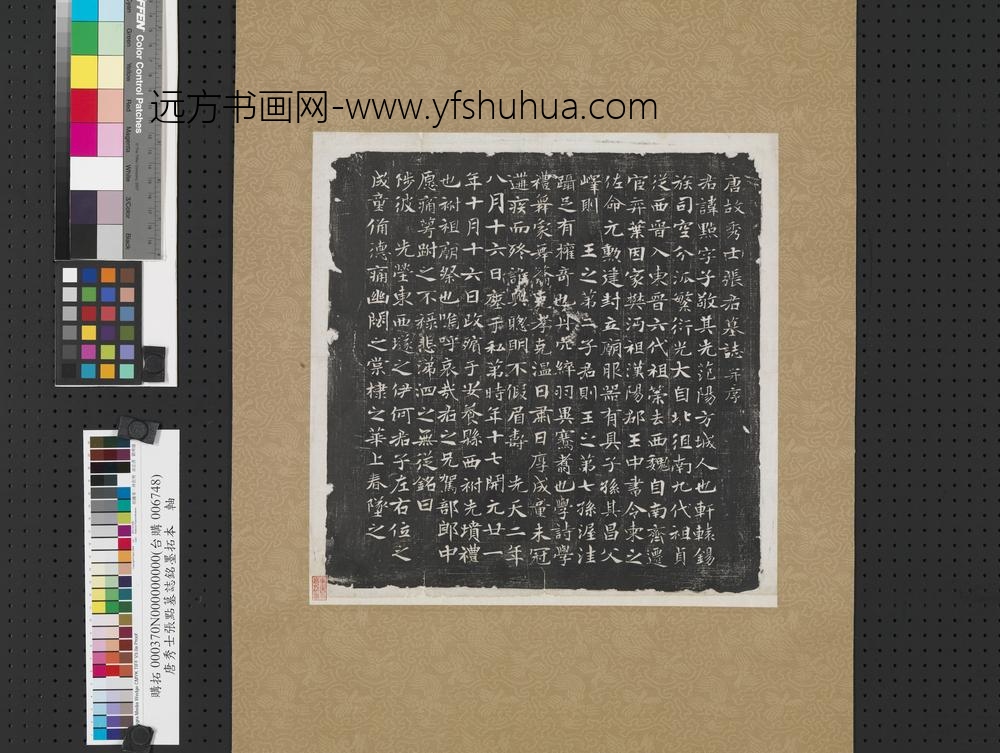 远方书画网-www.yfshuhua.com
唐故秀士張君墓誌并序
君諱點字子敬其先范陽方城人也軒轅錫
族司空分派繁衍光大自北徂南九代祖貞
從西晉入東晉六代祖榮去西魏自南齊遷
宦弈葉因家樊沔祖漢陽郡王中書令柬之
佐命元勳建封立廟服器有具子孫其昌父
嶧則王之第二子君則王之第七孫渥洼
躡足有擁奇也丹穴綷羽異騫翥也學詩學
禮昇家克孝克溫日肅日厚成童未冠
遘疾而終誰與聰明不假眉壽先天二年
八月十六日座于私第時年十七開元廿一
年十月十六日改殯于安養縣西祔先墳禮
也祔祖廟祭也嗚呼哀哉君之兄駕部郎中
愿痛萼跗之不祿悲涕泗之無從銘曰
陟彼先塋東西墳之伊何君子左右位之
成童脩德痛幽閟之棠棣之華上春墜之
KODAK Color Control Patches
White
3/Color
Black
購拓 000370N000000000(台購 006748)
唐秀士張點墓誌銘墨拓本 軸